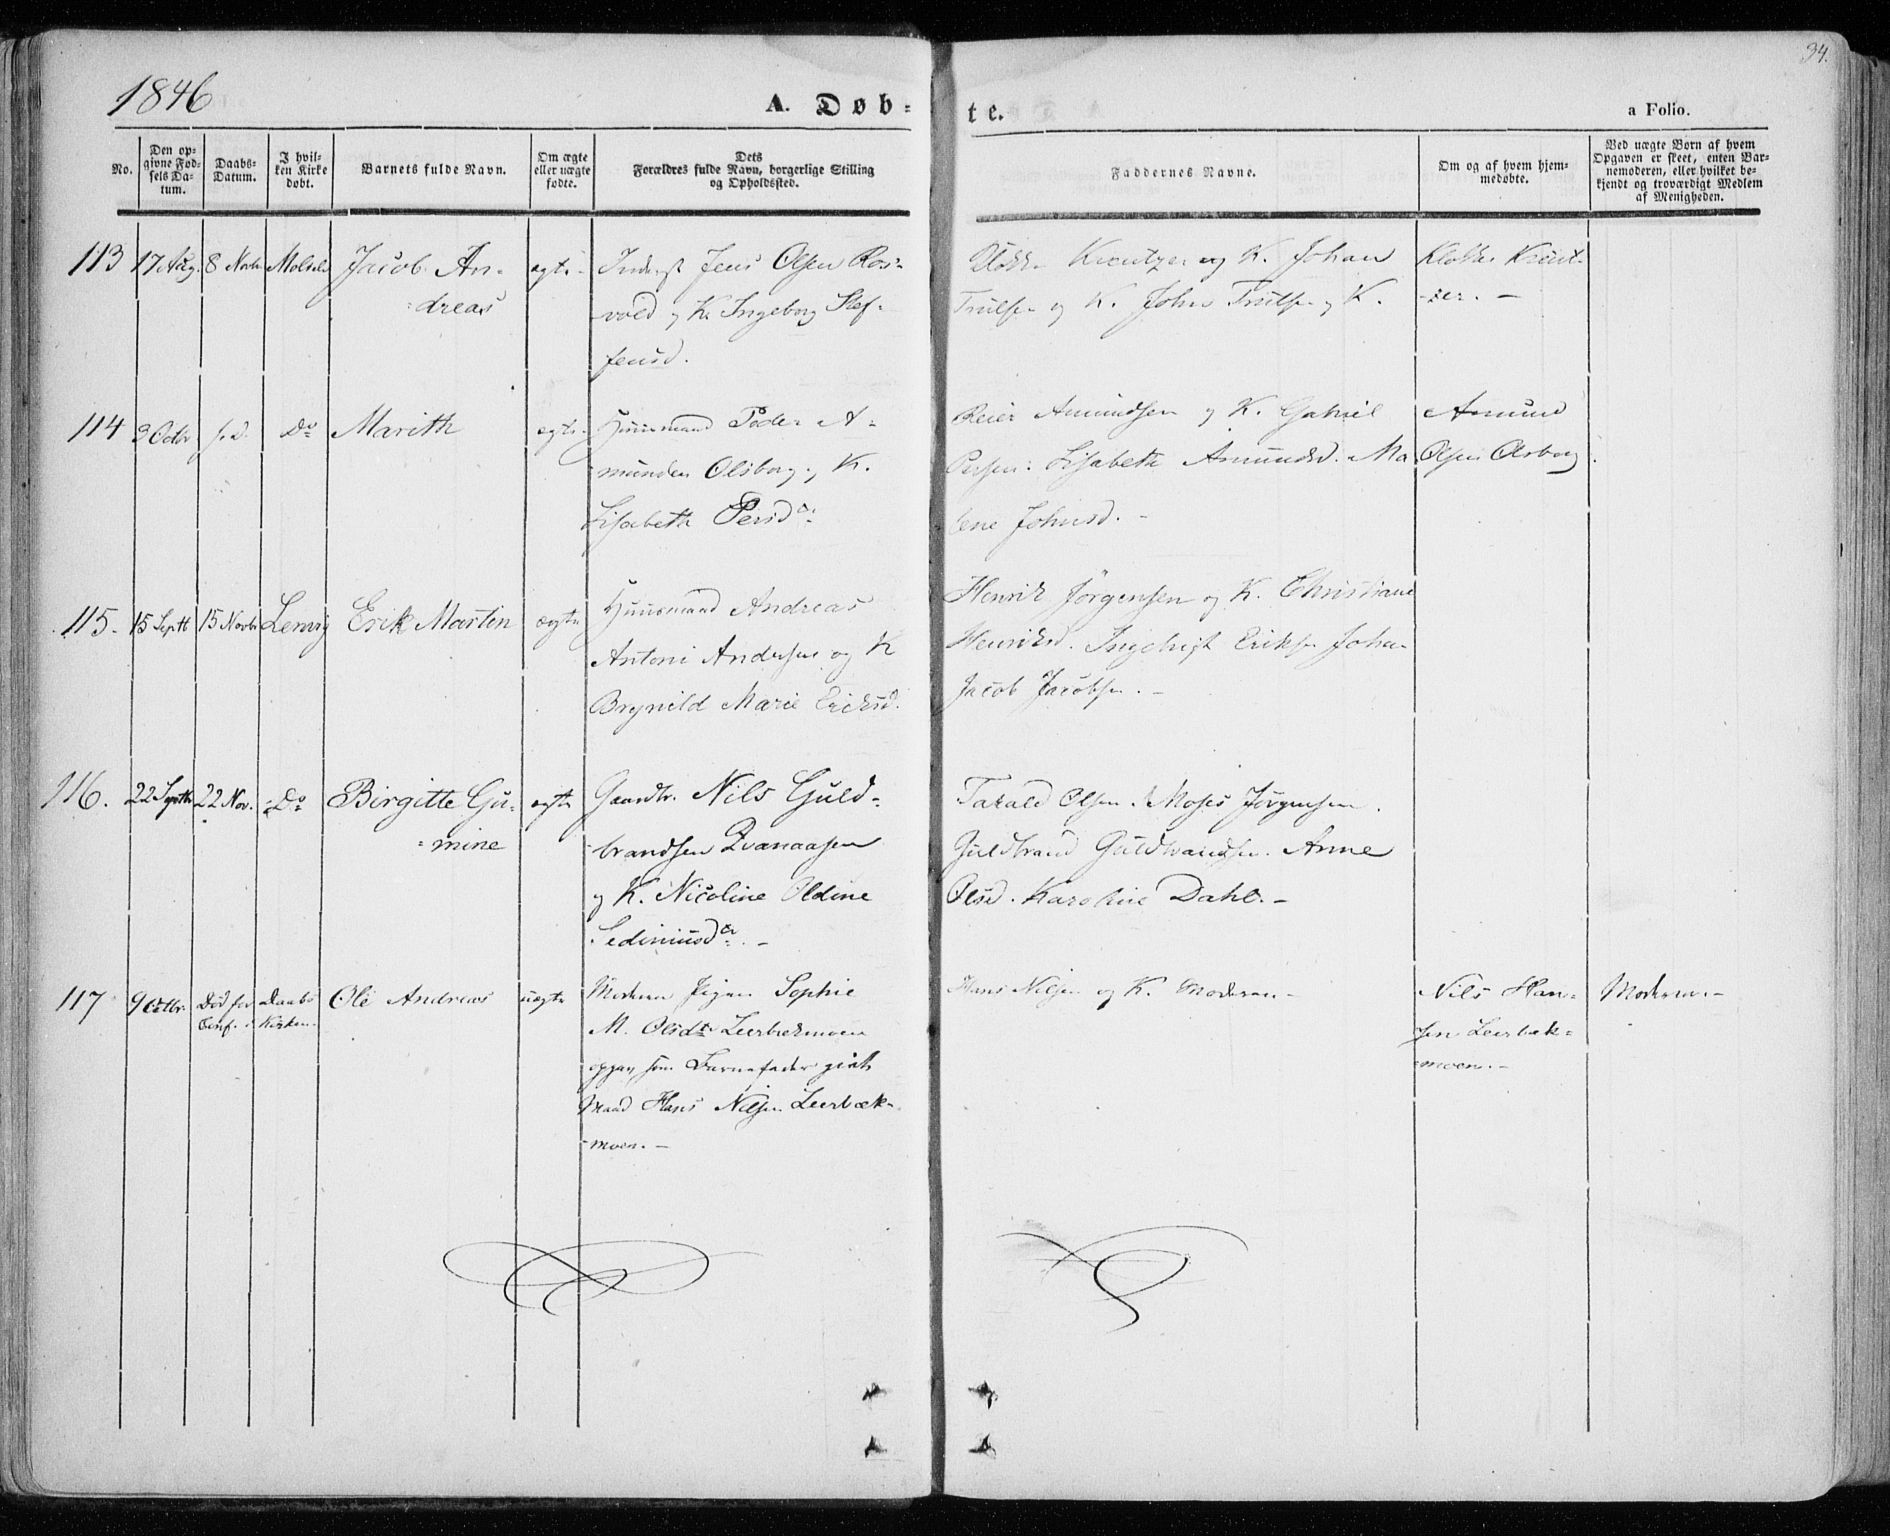 1846
A. Døb-
te.
a Folio.
34.
No.
Den op-
givne Fød-
sels Da-
tum.
Daabs-
Datum.
I hvil-
ken Kirke
døbt.
Barnets fulde Navn.
Om ægte
eller uægte
fødte.
Dets
Forældres fulde Navn, borgerlige Stilling
og Opholdssted.
Faddernes Navne.
Om og af hvem hjem-
medøbte.
Ved uægte Børn af hvem
Opgaven er skeet, enten Bar-
nemoderen, eller hvilket be-
kjendt og troværdigt Medlem
af Menigheden.
113 17 Aug. 8 Novbr Jacob An-
dreas
ægte
Inderst Jens Olsen Ros-
vold og K. Ingeborg Stef-
fensd.
Klokker Kreutzer og K. Johan
Trulsen og K. John Trulsen og K.
Klokker Kreut-
zer. -
114 3 Octbr s.D. Do Marith
ægte
Huusmand Peder A-
munsen Olsborg og K.
Lisabeth Persdr.
Reier Amundsen og K. Gabriel
Persen. Lisabeth Amundsd. Ma
lene Johnsd. -
Amund
Olsen Olsborg.
115. 15 Septb 15 Novbr Lenvig Erik Martin
ægte
Huusmand Andreas
Antoni Andersen og K
Brynild Marie Eriksd.
Henrik Jörgensen og K. Christiane
Henriksd. Ingebrigt Eriksen Johan
Jacob Jacobsen. -
116. 22 Septbr 22 Nov. Do Birgitte Gu-
mine
ægte
Gaardbr. Nils Guld-
brandsen Qvanaasen
og K. Nicoline Oldine
Sediniusdr. -
Tarald Olsen. Moses Jörgensen.
Guldbrand Guldbrandsen. Anne
Olsd. Karoline Dahl. -
117 9 Octbr. Död før
Daabs
Kirken.
Ole Andreas
uægte
Moderen Pigen Sophie
M. Olsdtr Leerbekmoen
opgav som Barnefader givt
Mand Hans Nilsen Leerbæk-
moen. -
Hans Nilsen og K. Moderen -
Nils Han-
sen Leerbæk-
moen. -
Moderen. -